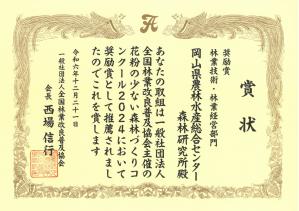 賞状
奨励賞
林業技術・林業経営部門
岡山県農林水産総合センター
森林研究所殿
あなたの取組は一般社団法人
全国林業改良普及協会主催の
花粉の少ない森林づくりコ
ンクール2024において
奨励賞として推薦されまし
たのでこれを賞します
令和六年十二月二十一日
一般社団法人全国林業改良普及協会
会長 西場信行